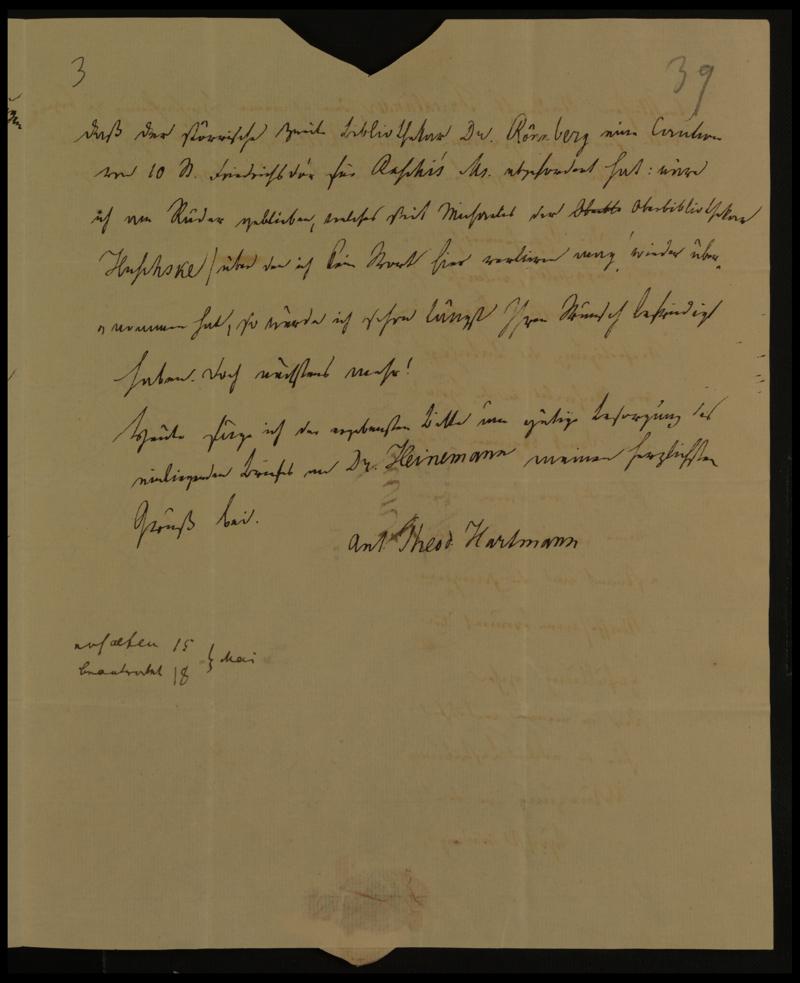 3
39
daß der störrische zweite Bibliothekar Dr. Rönnberg eine Caution
von 10 St. Friedrichsd'or für Raschi's Ms. abgefordert hat: wäre
ich am Ruder geblieben, welches seit Michaelis der Oberbibliothekar
Huschske / über den ich kein Wort hier verlieren mag / wieder über-
nommen hat, so würde ich schon längst Ihren Wunsch befriedigt
haben. Doch nächstens mehr!
Heute füge ich der ergebensten Bitte um gütige Besorgung des
einliegenden Briefes an Dr. Heinemann meinen herzlichsten
Gruß bei.
Ant Theod. Hartmann
erhalten 15
beantwortet 18 } Mai